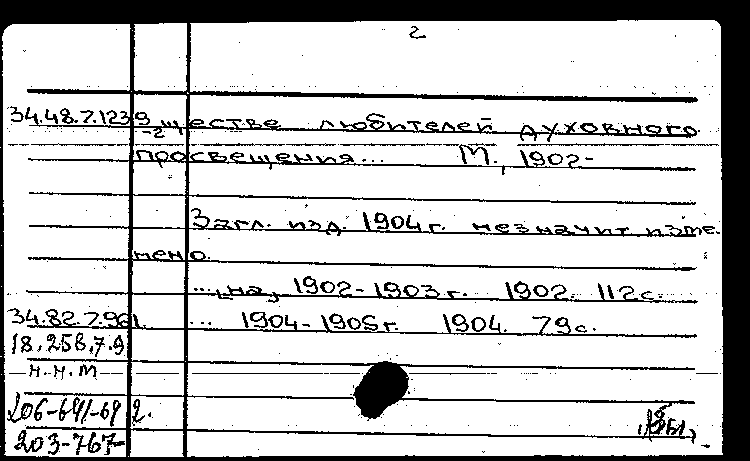 2
34.48.7.1239 ществе любителей духовного
-2
просвещения... М., 1902-
Загл. изд. 1904 г. незначит изме
нено.
..., на, 1902-1903 г. 1902. 112 с.
34.82.7.961. ... 1904-1905 г. 1904. 79 с.
18.258.7.9
н.н.м
206-641-69 2.
203-767-